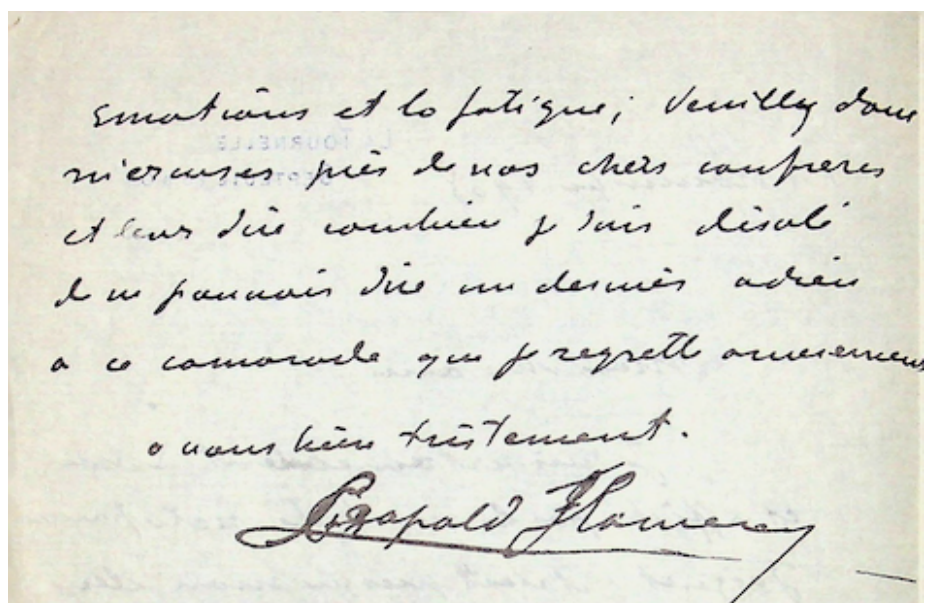 emotions et la fatigue; Veuillez donc
m'excuser près de nos chers confrères
et leur dire combien je suis désolé
de ne pouvoir dire un dernier adieu
a ce camarade que je regrette amèrement
a vous bien tristement.
Léopold Flameng
LA TOURNELLE
SEPTEUIL